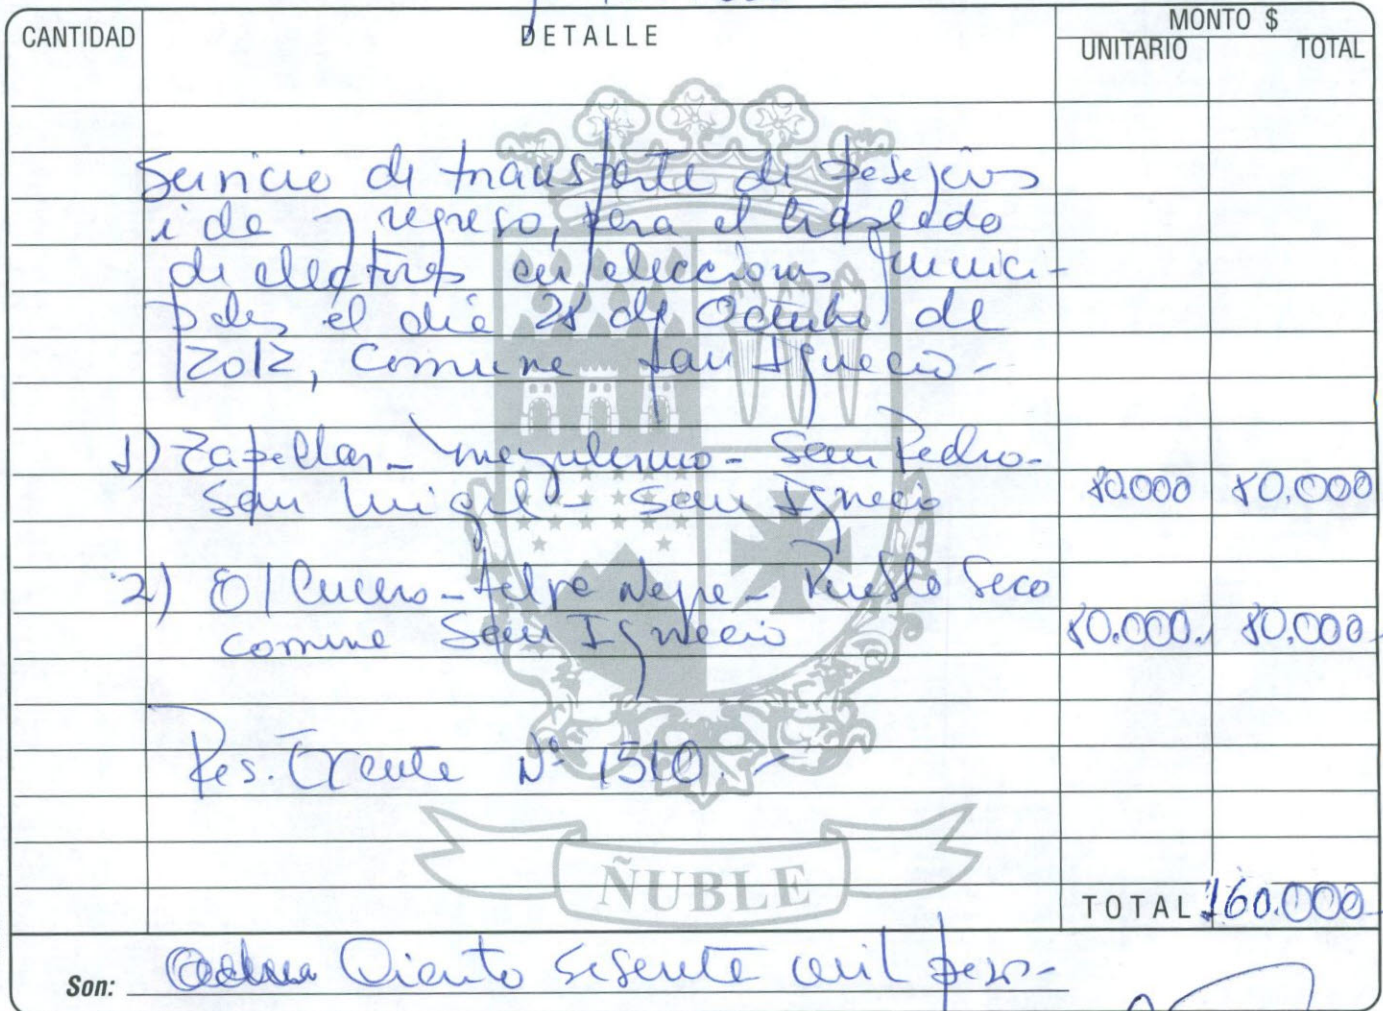 CANTIDAD DETALLE MONTO $
UNITARIO TOTAL
Servicio de transporte de pasajeros
ida y regreso, para el traslado
de electores en elecciones munici-
pales el día 28 de Octubre de
2012, Comuna San Ignacio-
1) Zapallar - - San Pedro-
San Miguel - San Ignacio 80.000 80.000
2) El - - Pueblo Seco
comuna San Ignacio 80.000. 80.000
Res. Exenta Nº 1510.-
ÑUBLE
TOTAL 160.000
Son: Ciento sesenta mil pesos-